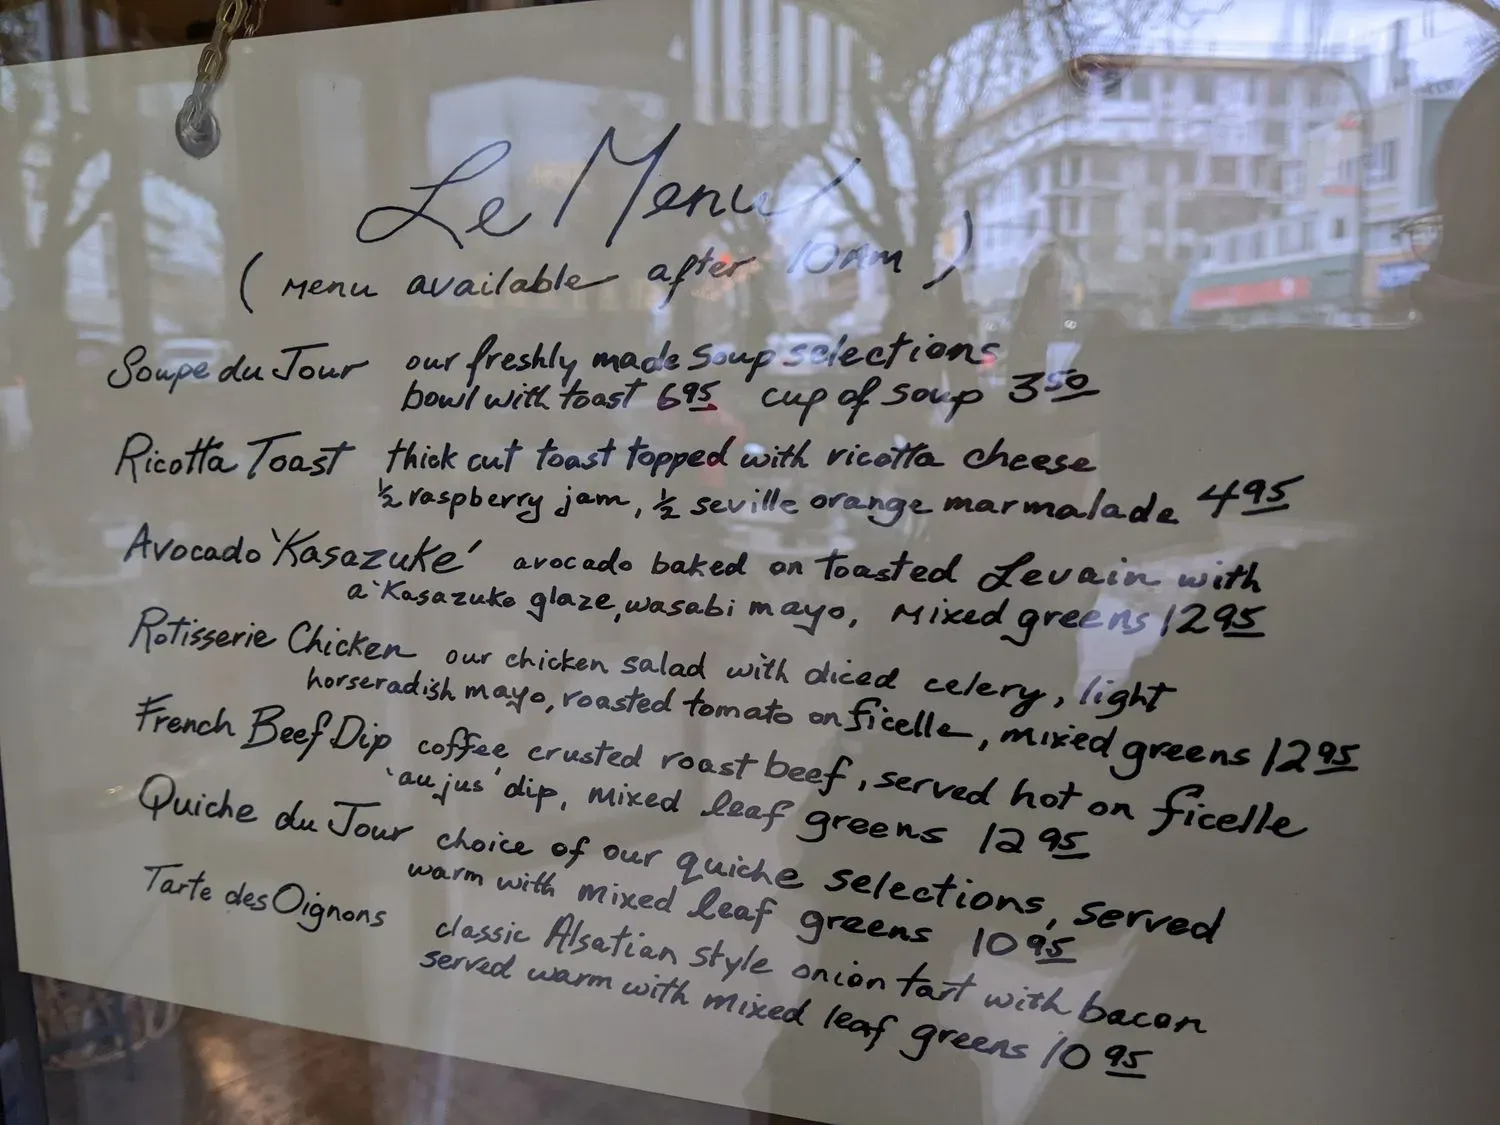 Le Menu
(Menu available after 10AM)
Soupe du Jour our freshly made soup selections
bowl with toast 6 95 cup of soup 3 50
Ricotta Toast thick cut toast topped with ricotta cheese
½ raspberry jam, ½ seville orange marmalade 4 95
Avocado 'Kasazuke' avocado baked on toasted Levain with
a 'Kasazuke glaze, wasabi mayo, mixed greens 12 95
Rotisserie Chicken our chicken salad with diced celery, light
horseradish mayo, roasted tomato on ficelle, mixed greens 12 95
French Beef Dip coffee crusted roast beef, served hot on ficelle
'au jus' dip, mixed leaf greens 12 95
Quiche du Jour choice of our quiche selections, served
warm with mixed leaf greens 10 95
Tarte des Oignons classic Alsatian style onion tart with bacon
served warm with mixed leaf greens 10 95